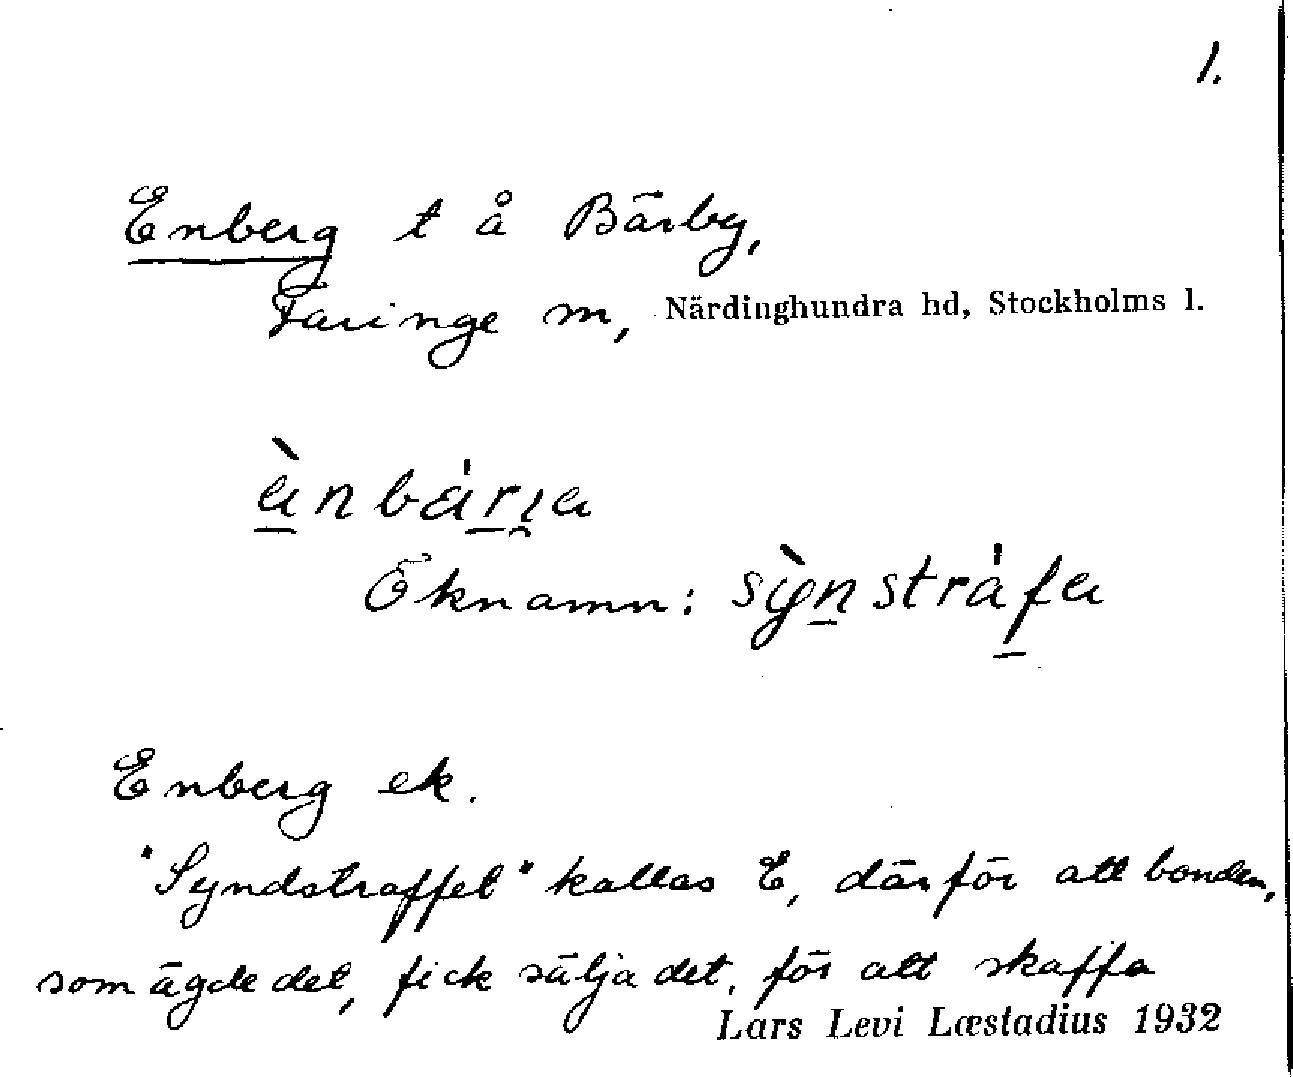 1.
Enberg t å Bärby,
Faringe sn, Närdinghundra hd, Stockholms l.
ànbárɩa
Öknamn: sỳnstráfa
Enberg ek.
"Syndstraffet" kallas E, därför att bonden,
som ägde det, fick sälja det, för att skaffa
Lars Levi Læstadius 1932